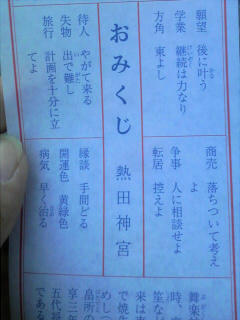 願望 後に叶う
学業 継続は力なり
方角 東よし
待人 やがて来る
失物 出で難し
旅行 計画を十分に立
てよ
おみくじ 熱田神宮
商売 落ちついて考え
よ
争事 人に相談せよ
転居 控えよ
縁談 手間どる
開運色 黄緑色
病気 早く治る
舞楽
時、
笙な
来は
で焼
めし
畠所の
享三年
五代
である